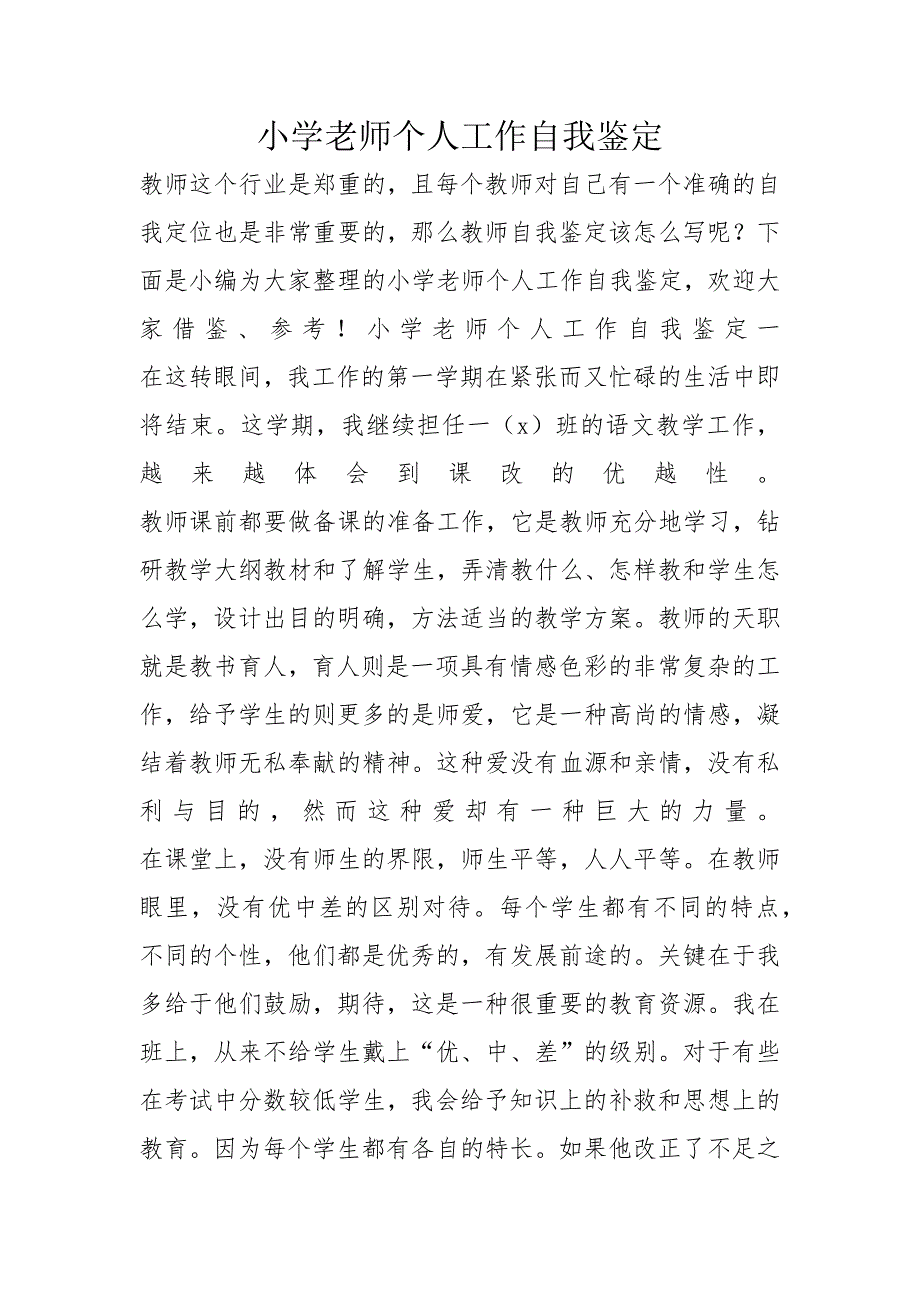 小学老师个人工作自我鉴定
教师这个行业是郑重的，且每个教师对自己有一个准确的自
我定位也是非常重要的，那么教师自我鉴定该怎么写呢？下
面是小编为大家整理的小学老师个人工作自我鉴定，欢迎大
家借鉴、参考！小学老师个人工作自我鉴定一
在这转眼间，我工作的第一学期在紧张而又忙碌的生活中即
将结束。这学期，我继续担任一（x）班的语文教学工作，
越来越体会到课改的优越性。
教师课前都要做备课的准备工作，它是教师充分地学习，钻
研教学大纲教材和了解学生，弄清教什么、怎样教和学生怎
么学，设计出目的明确，方法适当的教学方案。教师的天职
就是教书育人，育人则是一项具有情感色彩的非常复杂的工
作，给予学生的则更多的是师爱，它是一种高尚的情感，凝
结着教师无私奉献的精神。这种爱没有血源和亲情，没有私
利与目的，然而这种爱却有一种巨大的力量。
在课堂上，没有师生的界限，师生平等，人人平等。在教师
眼里，没有优中差的区别对待。每个学生都有不同的特点，
不同的个性，他们都是优秀的，有发展前途的。关键在于我
多给于他们鼓励，期待，这是一种很重要的教育资源。我在
班上，从来不给学生戴上“优、中、差”的级别。对于有些
在考试中分数较低学生，我会给予知识上的补救和思想上的
教育。因为每个学生都有各自的特长。如果他改正了不足之